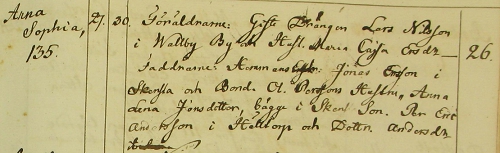 Anna
Sophia,
135.
27. 30. Föräldrarne: Gifte Drängen Lars Nilsson
i Wallby By och Hust. Maria Cajsa Ersdr
26.
Faddrarne: Hemmans Jonas Ersson i
Skensta och Bond. Ol. Perssons Hustru Anna
Jonsdotter, bägge i Son. Per Eric
Andersson i och Dottr. Andersdr